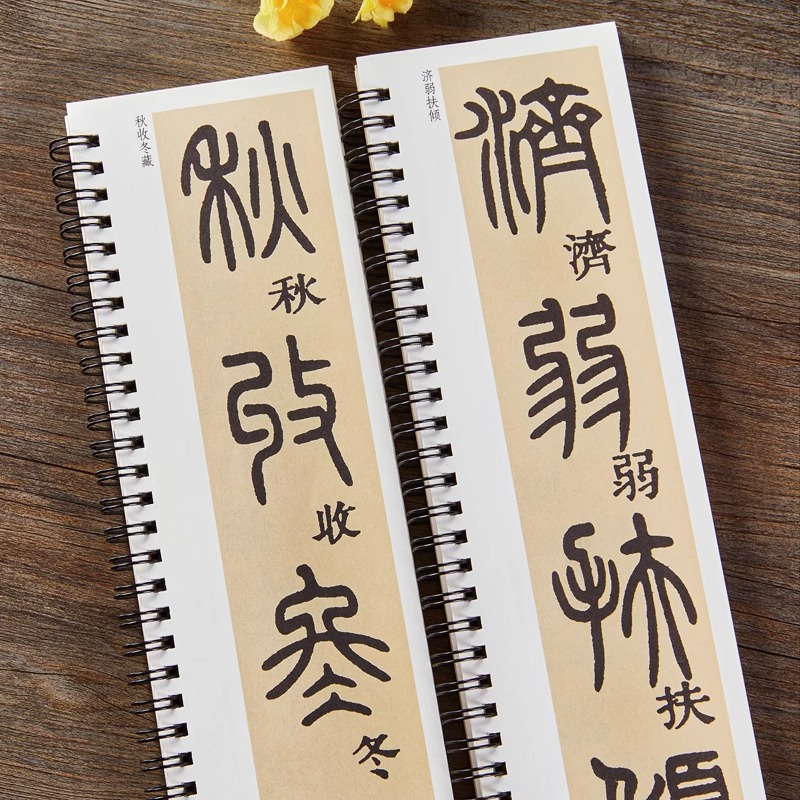 秋收冬藏
秋
秋
收
收
冬
冬
济弱扶倾
濟
濟
弱
弱
扶
扶
傾